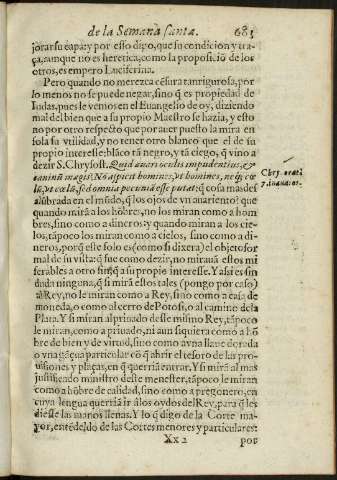 de la Semana santa. 681
jorar su capa: y por esto digo, que su condicion y tra-
ça, aunque no es heretica, como la proposiciõ de los
otros, es empero Luciferina.
Pero quando no merezca cẽsura tan rigurosa, por
lo menos no se puede negar, sino q̃ es propiedad de
Iudas, pues le vemos en el Euangelio de oy, diziendo
mal del bien que a su propio Maestro se hazia, y esto
no por otro respecto que por auer puesto la mira en
sola su vtilidad, y no tener otro blanco que el de su
propio interesse: blãco tã negro, y tã ciego, q̃ vino a
dezir S. Chrysost. Quid auari oculis impudentius, &
caninũ magis? Nõ aspicit homines, vt homines, neq̃; cœ
lũ, vt cœlũ, sed omnia pecuniã esse putat: q̃ cosa mas des
alũbrada en el mũdo, q̃ los ojos de vn auariento? que
quando mirã a los hõbres, no los miran como a hom-
bres, sino como a dineros: y quando miran a los cie-
los, tãpoco los miran como a cielos, sino como a di-
neros, porq̃ este solo es (como si dixera) el objeto for
mal de su vista: q̃ fue como dezir, no mirauã estos mi
serables a otro fin, q̃ a su propio interesse. Y assi es sin
duda ninguna, q̃ si mirã estos tales (pongo por caso)
al Rey, no le miran como a Rey, sino como a casa de
moneda, o como al cerro de Potosi, o al camino de la
Plata. Y si miran al priuado desse mismo Rey, tãpoco
le miran, como a priuado, ni aun siquiera como a hõ
bre de bien y de virtud, sino como a vna llaue dorada
o vna gãçua particular cõ q̃ abrir el tesoro de las pro
uisiones y plaças, en q̃ querriã entrar. Y si mirã al mas
justificado ministro deste menester, tãpoco le miran
como a hõbre de calidad, sino como a pregonero, en
cuya lengua querriã ir a los oydos del Rey, para q̃ les
diesse las manos llenas. Y lo q̃ digo de la Corte ma-
yor, entẽdeldo de las Cortes menores y particulares:
Xx 2 por
Chry. orati
7.